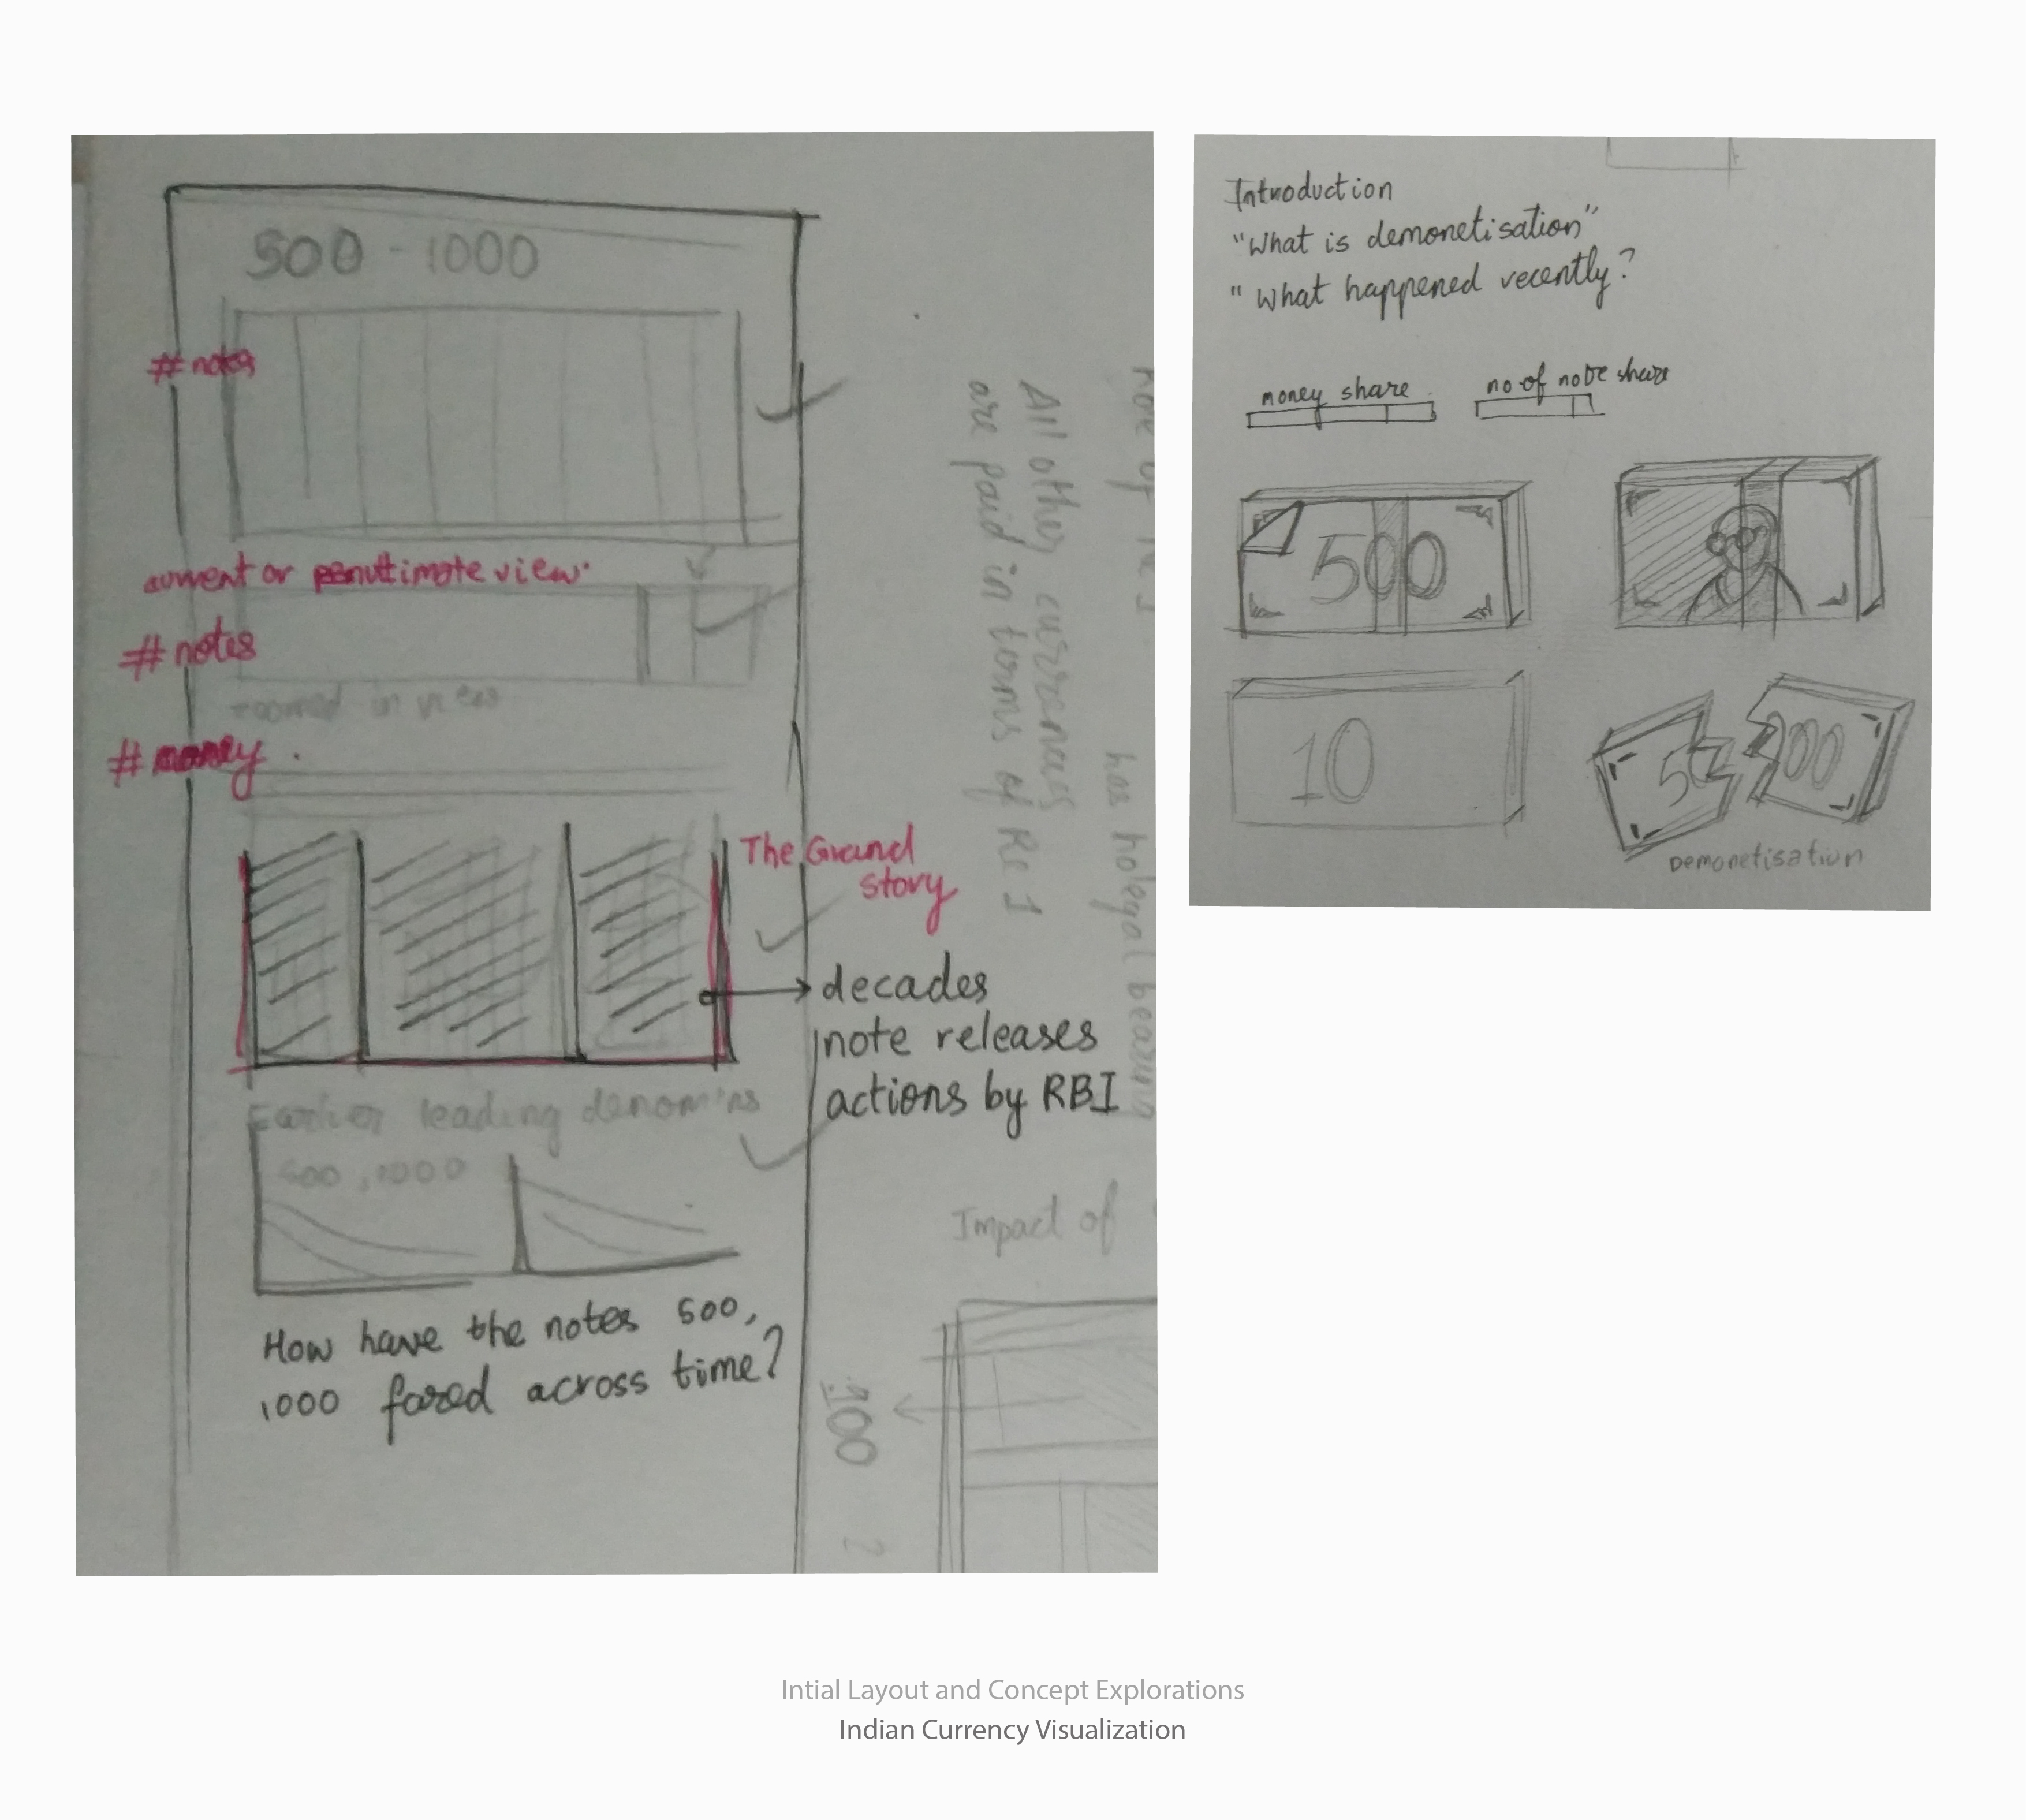 500 - 1000
# notes
current or penultimate view.
# notes
zoomed in view
# money
The Grand
story
decades
note releases
actions by RBI
Earlier leading denomins
500, 1000
How have the notes 500,
1000 fared across time?
All other currencies
are paid in terms of Re 1
has no legal bearing
Impact of
100
2
Introduction
"What is demonetisation"
"What happened recently?
money share
no of note share
500
10
50
00
Demonetisation
Intial Layout and Concept Explorations
Indian Currency Visualization